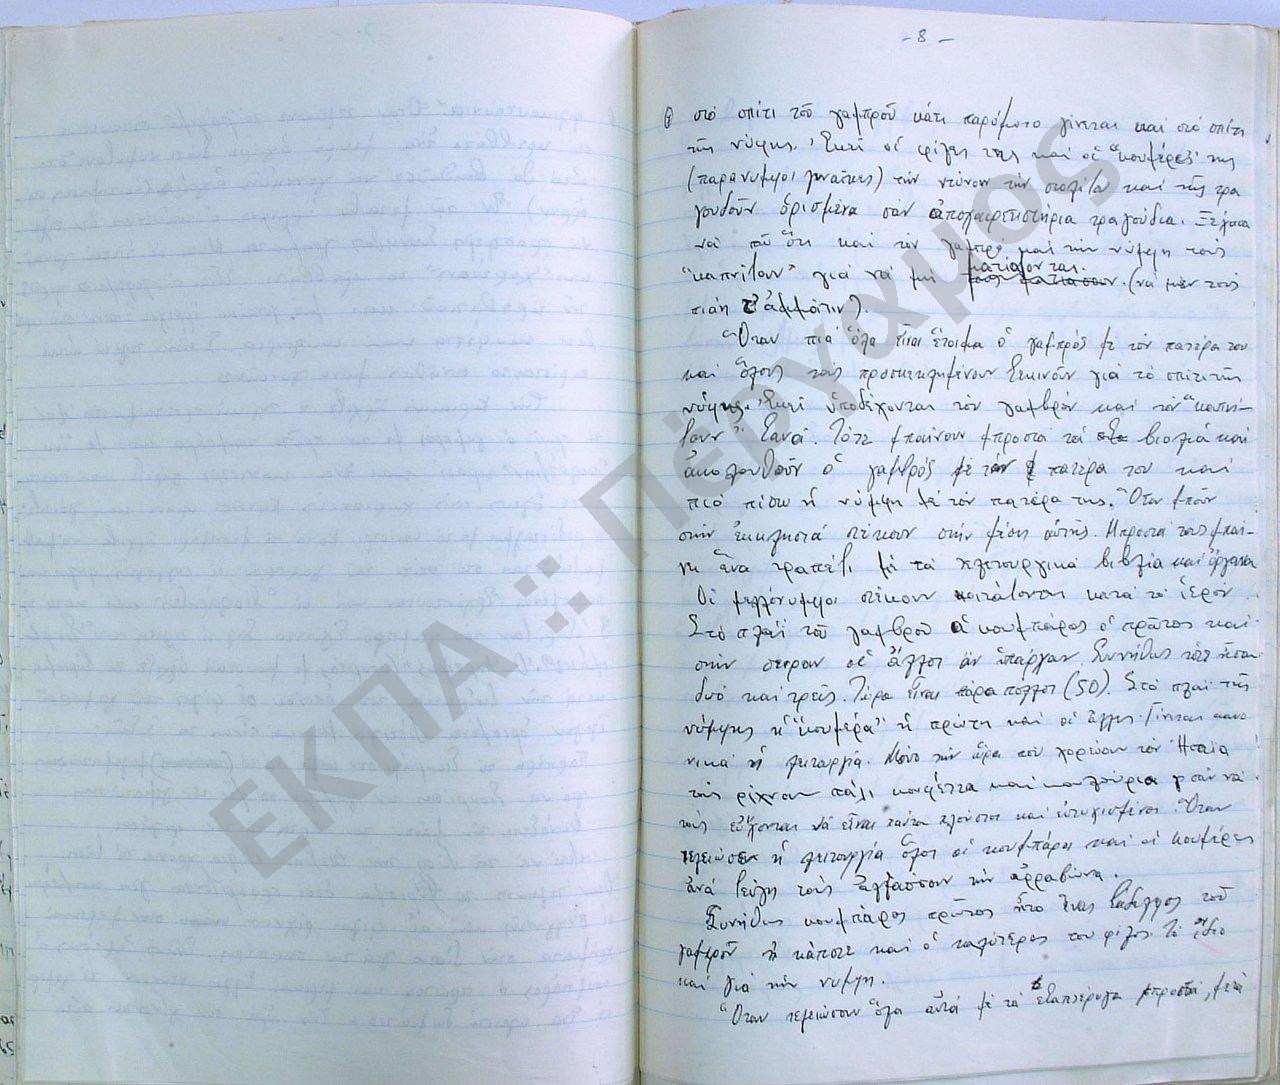 - 8 -
στό σπίτι τοῦ γαμπροῦ κάτι παρόμοιο γίνεται καί στό σπίτι
τῆς νύφης. Ἐκεῖ οἱ φίλες της καί οἱ "κουμέρες" της
(παρανυμφοι γυναῖκες) τήν ντύνουν τήν στολίζουν καί τῆς τρα
γουδοῦν ὁρισμένα σάν ἀποχαιρετιστήρια τραγούδια. Ξέχασα
νά πῶ ὅτι καί τόν γαμπρό καί τήν νύμφη τούς
"καπνίζουν" γιά νά μή ματιάζονται. (νά μέν τούς
πιάη τ' ἀμμάτιν).
Ὅταν πιά ὅλα εἶναι ἕτοιμα ὁ γαμπρός μέ τόν πατέρα του
καί ὅλους τούς προσκεκλημένους ξεκινοῦν γιά τό σπίτι τῆς
νύμφης. Ἐκεῖ ὑποδέχονται τόν γαμβρόν καί τόν "καπνί-
ζουν" ξανά. Τότε μπαίνουν μπροστά τά βιολιά καί
ἀκολουθοῦν ὁ γαμβρός μέ τόν πατέρα του καί
πιό πίσω ἡ νύμφη μέ τόν πατέρα της. Ὅταν μποῦν
στήν ἐκκλησιά στέκουν στήν μέση αὐτῆς. Μπροστά τους μπαί-
νει ἕνα τραπέζι μέ τά λειτουργικά βιβλία καί ὄργανα
Οἱ μελλόνυμφοι στέκουν κοιτάζοντας κατά τό ἱερόν
Στό πλάϊ τοῦ γαμβροῦ ὁ κουμπάρος ὁ πρῶτος καί
στήν σειράν οἱ ἄλλοι ἄν ὑπάρχαν. Συνήθως τότε ἦσαν
δυό καί τρεῖς. Τώρα εἶναι πάρα πολλοί (50). Στό πλάϊ τῆς
νύμφης ἡ "κουμέρα" ἡ πρώτη καί οἱ ἄλλες. Γίνεται κανο
νικά ἡ λειτουργία. Μόνο τήν ὥρα πού χορεύουν τόν Ἠσαΐα
τούς ρίχνουν πάλι κουφέττα καί κουλούρια σάν νά
τους εὔχονται νά εἶναι πάντα πλούσιοι καί εὐτυχισμένοι. Ὅταν
τελειώσει ἡ λειτουργία ὅλοι οἱ κουμπάροι καί οἱ κουμέρες
ἀνά ζεύγη τούς ἀλλάσσουν τήν ἀρραβώνα.
Συνήθως κουμπάρος πρῶτος ἦτο ἕνας ξάδελφος τοῦ
γαμβροῦ ἤ κάποτε καί ὁ καλύτερος του φίλος. Τό ἴδιο
καί γιά τήν νύμφη.
Ὅταν τελειώσουν ὅλα αὐτά μέ τά ἑξαπτέρυγα μπροστά, μετά
ΕΚΠΑ :: Πέργαμος